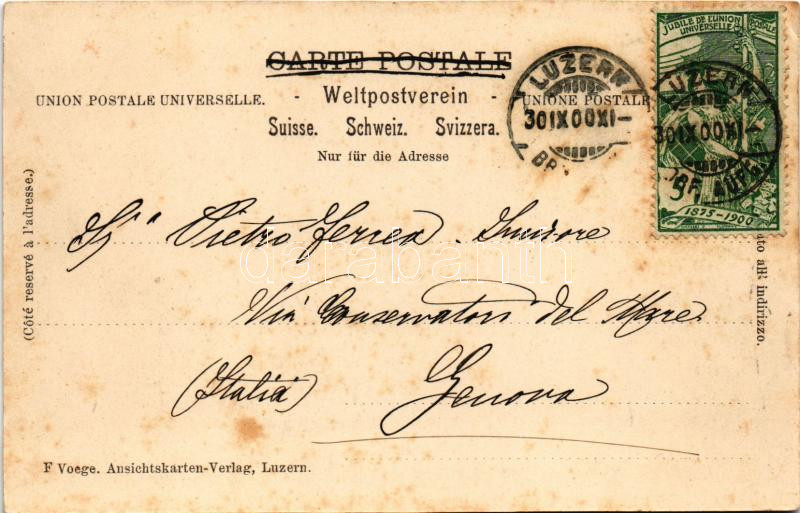 CARTE POSTALE
JUBILÉ DE L'UNION
UNIVERSELLE POSTALE
LUZERN
30 IX 00 XI-
LUZERN
30 IX 00 XI-
BRF. AUFG.
5
1875-1900
UNION POSTALE UNIVERSELLE. - Weltpostverein - UNIONE POSTALE
Suisse. Schweiz. Svizzera.
Nur für die Adresse
(Côté reservé à l'adresse.)
all' indirizzo.
Pietro Ferrea.
Via Conservatori del Mare.
(Italia) Genova
F Voege. Ansichtskarten-Verlag, Luzern.
darabanth